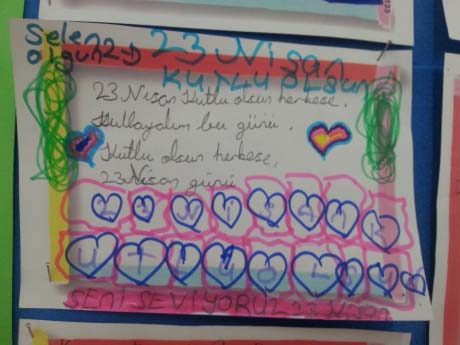 Selen 23 Nisan
Olgun 2-D KUTLU OLSUN
23 Nisan Kutlu olsun herkese,
Kutlayalım bu günü.
Kutlu olsun herkese,
23 Nisan günü
SENİ SEVİYORUZ 23 Nisan